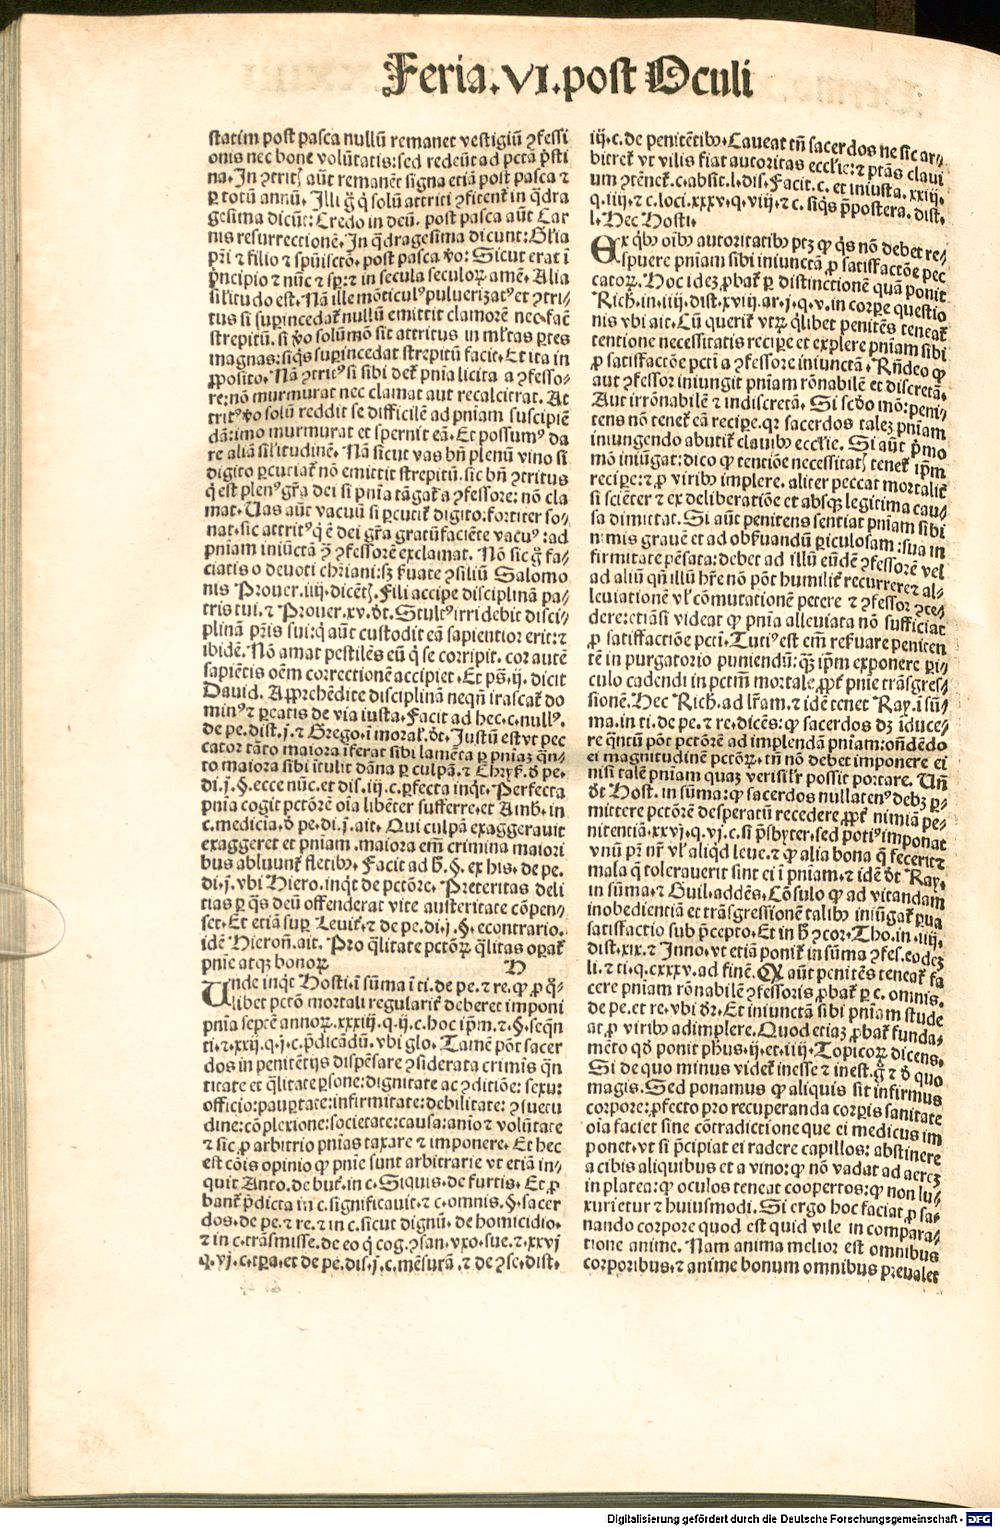 Feria.VI.post Oculi
statim post pasca nullū remanet vestigiū ꝯfessi
onis nec bone volūtatis: sed redeūt ad pctā p̄sti
na. In ꝯtritꝭ aūt remanēt signa etiā post pasca ⁊
ꝑ totū annū. Illi g̊ q̇ solū attriti ꝯfitent̄ in q̄dra
gesima dicūt: Credo in deū. post pasca aūt Car
nis resurrectionē. In q̄dragesima dicunt: Gl̄ia
pr̄i ⁊ filio ⁊ spūisctō. post pasca ꝟo: Sicut erat ī
p̄ncipio ⁊ nūc ⁊ sp̄: ⁊ in secula seculoꝝ amē. Alia
sil̄itudo est. Nā ille mōticulꝰ puluerizatꝰ et ꝯtri⸗
tus si suꝑincedat̄ nullū emittit clamorē nec facē
strepitū. si ꝟo solūmō sit attritus in ml̄tas ꝑtes
magnas: siq̇s suꝑincedat strepitū facit. Et ita in
ꝓposito. Nā ꝯtritꝰ si sibi det̄ pnīa licita a ꝯfesso⸗
re: nō murmurat nec clamat aut recalcitrat. At
tritꝰ ꝟo solū reddit se difficilē ad pniam suscipiē
dā: imo murmurat et spernit eā. Et possumꝰ da
re aliā sil̄itudinē. Nā sicut vas bn̄ plenū vino si
digito ꝑcutiat̄ nō emittit strepitū. sic bn̄ ꝯtritus
q̇ est plenꝰ gr̄a dei si pnīa tāgat̄ a ꝯfessore: nō cla
mat. Uas aūt vacuū si ꝑcutit̄ digito: fortiter so⸗
nat. sic attritꝰ q̇ ē dei gr̄a gratū faciēte vacuꝰ: ad
pniam iniūctā ꝑ ꝯfessorē exclamat. Nō sic g̊ fa⸗
ciatis o deuoti chr̄iani: sꝫ ẜuate ꝯsiliū Salomo
nis Prouer. iiij. dicētꝭ. Fili accipe disciplinā pa⸗
tris tui. ⁊ Prouer. xv. ꝺt. Stultꝰ irridebit disci⸗
plinā pr̄is sui: q̇ aūt custodit eā sapientior erit: ⁊
ibidē. Nō amat pestilēs eū q̇ se corripit. cor autē
sapiētis oēm correctionē accipiet. Et ps̄. ij. dicit
Dauid. Apprehēdite disciplinā neqn̄ irascat̄ do
minꝰ ⁊ ꝑeatis de via iusta. Facit ad hec. c. nullꝰ.
de pe. dist. j. ⁊ Grego. ī moral̄. ꝺt. Justū est vt pec
cator tāto maiora īferat sibi lamēta ꝑ pniaꝫ qn̄⸗
to maiora sibi ītulit dāna ꝑ culpā. ⁊ Chryẜ. ꝺ pe.
di. j. §. ecce nūc. et dis. iij. c. ꝑfecta inqt̄. Perfecta
pnia cogit pctōrē oīa libēter sufferre. et Amb. in
c. medicīa. ꝺ pe. di. j. ait. Qui culpā exaggerauit
exaggeret et pniam. maiora em̄ crimina maiori
bus abluunt̄ fletibꝰ. Facit ad h̄. §. ex his. de pe.
di. j. vbi Hiero. inqt̄ de pctōre. Preteritas deli
tias ꝑ q̄s deū offenderat vite austeritate cōpen⸗
set. Et etiā suꝑ Leuit̄. ⁊ de pe. di. j. §. econtrario.
idē Hieroñ. ait. Pro q̄litate pctōꝝ q̄litas oꝑat̄
pnīe atqꝫ honoꝝ H
Unde inqt̄ Hosti. ī sūma ī ti. de pe. ⁊ re. ꝙ ꝓ q̄⸗
libet pctō mortali regularit̄ deberet imponi
pnīa septē annoꝝ. xxxiij. q. ij. c. hoc ip̄m. ⁊. §. seqn̄
ti. ⁊. xxij. q. j. c. p̄dicādū. vbi glo. Tamē pōt sacer
dos in penitētijs dispēsare ꝯsiderata crimīs qn̄
titate et q̄litate ꝑsone: dignitate ac ꝯditiōe: sexu:
officio: pauꝑtate: infirmitate: debilitate: ꝯsuetu
dine: cōplexione: societate: causa: anīo ⁊ volūtate
⁊ sic ꝓ arbitrio pnīas taxare ⁊ imponere. Et hec
est cōis opinio ꝙ pnīe sunt arbitrarie vt etiā in⸗
quit Anto. de but̄. in c. Siquis. de furtis. Et ꝓ
bant̄ p̄dicta in c. significauit. ⁊ c. omnis. §. sacer
dos. de pe. ⁊ re. ⁊ in c. sicut dignū. de homicidio.
⁊ in c. trāsmisse. de eo q̇ cog. ꝯsan. vxo. sue. ⁊. xxvj
q. vj. c. tꝑa. et de pe. dis. j. c. mēsurā. ⁊ de ꝯse. dist.
iij. c. de penitētibꝰ. Caueat tn̄ sacerdos ne sic ar⸗
bitret̄ vt vilis fiat autoritas eccl̄ie: ⁊ ptās claui
um ꝯtēnet̄. c. absit. l. dis. Facit. c. et iniusta. xxiij.
q. iiij. ⁊ c. loci. xxxv. q. viij. ⁊ c. siq̇s p̄postera. dist.
l. Hec Hosti.
Ex qbꝰ oībꝰ autoritatibꝰ ptꝫ ꝙ q̇s nō debet re⸗
spuere pniam sibi iniunctā ꝓ satisfactōe pec
catoꝝ. Hoc ideꝫ ꝓbat̄ ꝑ distinctionē quā ponit
Rich. in. iiij. dist. xviij. ar. j. q. v. in corꝑe questio
nis vbi ait. Cū querit̄ vtꝝ q̄libet penitēs teneat̄
tentione necessitatis recipe et explere pniam sibi
ꝓ satisfactōe pcti a ꝯfessore iniunctā. Rn̄deo ꝙ
aut ꝯfessor iniungit pniam rōnabilē et discretā.
Aut irrōnabilē ⁊ indiscretā. Si scd̄o mō: peni⸗
tens nō tenet̄ eā recipe. qꝛ sacerdos taleꝫ pniam
iniungendo abutit̄ clauibꝰ eccl̄ie. Si aūt p̄mo
mō iniūgat: dico ꝙ tentiōe necessitatꝭ tenet̄ ip̄m
recipe: ⁊ ꝓ viribꝰ implere. aliter peccat mortalit̄
si sciēter ⁊ ex deliberatiōe et absqꝫ legitima cau⸗
sa dimittat. Si aūt penitens sentiat pniam sibi
nimis grauē et ad obẜuandū ꝑiculosam: sua in
firmitate pēsata: debet ad illū eūdē ꝯfessorē vel
ad aliū qn̄ illū hr̄e nō pōt humilit̄ recurrere ⁊ al⸗
leuiationē vl̄ cōmutationē petere ⁊ ꝯfessor ꝯce⸗
dere: etiāsi videat ꝙ pnīa alleuiata nō sufficiat
ꝓ satisfactiōe pcti. Tutiꝰ est em̄ reẜuare peniten
tē in purgatorio puniendū: qꝫ ip̄m exponere ꝑi⸗
culo cadendi in pctm̄ mortale. ꝓpt̄ pnīe trāsgres⸗
sionē. Hec Rich. ad lr̄am. ⁊ idē tenet Ray. ī sū⸗
ma. in ti. de pe. ⁊ re. dicēs: ꝙ sacerdos dꝫ īduce⸗
re qn̄tū pōt pctōrē ad implendā pniam: on̄dēdo
ei magnitudinē pctōꝝ. tn̄ nō debet imponere ei
nisi talē pniam quaꝫ verisil̄r possit portare. Un̄
ꝺt Host. in sūma: ꝙ sacerdos nullatenꝰ debꝫ ꝑ⸗
mittere pctōrē desperatū recedere ꝓpt̄ nimiā pe⸗
nitentiā. xxvj. q. vj. c. si p̄sbyter. sed potiꝰ imponat
vnū pr̄ nr̄ vl̄ aliqd leue. ⁊ ꝙ alia bona q̄ fecerit ⁊
mala q̄ tolerauerit sint ei ī pniam. ⁊ idē ꝺt Ray.
in sūma. ⁊ Guil. addēs. Cōsulo ꝙ ad vitandam
inobedientiā et trāsgressionē talibꝰ iniūgat̄ ꝑua
satisfactio sub p̄cepto. Et in h̄ ꝯcor. Tho. in. iiij.
dist. xix. ⁊ Inno. vt etiā ponit̄ in sūma ꝯfes. eodeꝫ
li. ⁊ ti. q. cxxxv. ad finē. Q aūt penitēs teneat̄ fa
cere pniam rōnabilē ꝯfessoris ꝓbat̄ ꝑ c. omnis.
de pe. et re. vbi ꝺr. Et iniunctā sibi pniam stude
at ꝓ viribꝰ adimplere. Quod etiaꝫ ꝓbat̄ funda⸗
mēto qd̄ ponit phus. ij. et. iiij. Topicoꝝ dicens.
Si de quo minus videt̄ inesse ⁊ inest. g̊ ⁊ ꝺ quo
magis. Sed ponamus ꝙ aliquis sit infirmus
corpore: ꝓfecto pro recuperanda corꝑis sanitate
oīa faciet sine cōtradictione que ei medicus im
ponet. vt si p̄cipiat ei radere capillos: abstinere
a cibis aliquibus et a vino: ꝙ nō vadat ad aereꝫ
in platea: ꝙ oculos teneat coopertos: ꝙ non lu⸗
xurietur ⁊ huiusmodi. Si ergo hoc faciat ꝓ sa⸗
nando corpore quod est quid vile in compara⸗
tione anime. Nam anima melior est omnibus
corporibus. ⁊ anime bonum omnibus preualet
Digitalisierung gefördert durch die Deutsche Forschungsgemeinschaft - DFG